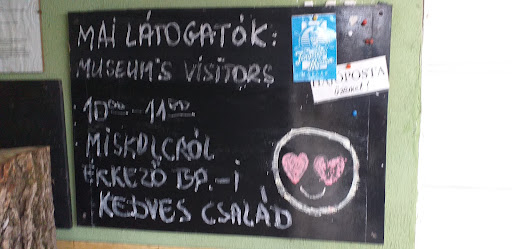 MAI LÁTOGATÓK:
MUSEUM'S VISITORS
10⁰⁰-11⁰⁰
MISKOLCRÓL
ÉRKEZŐ BP.-I
KEDVES CSALÁD
HAJÓPOSTA